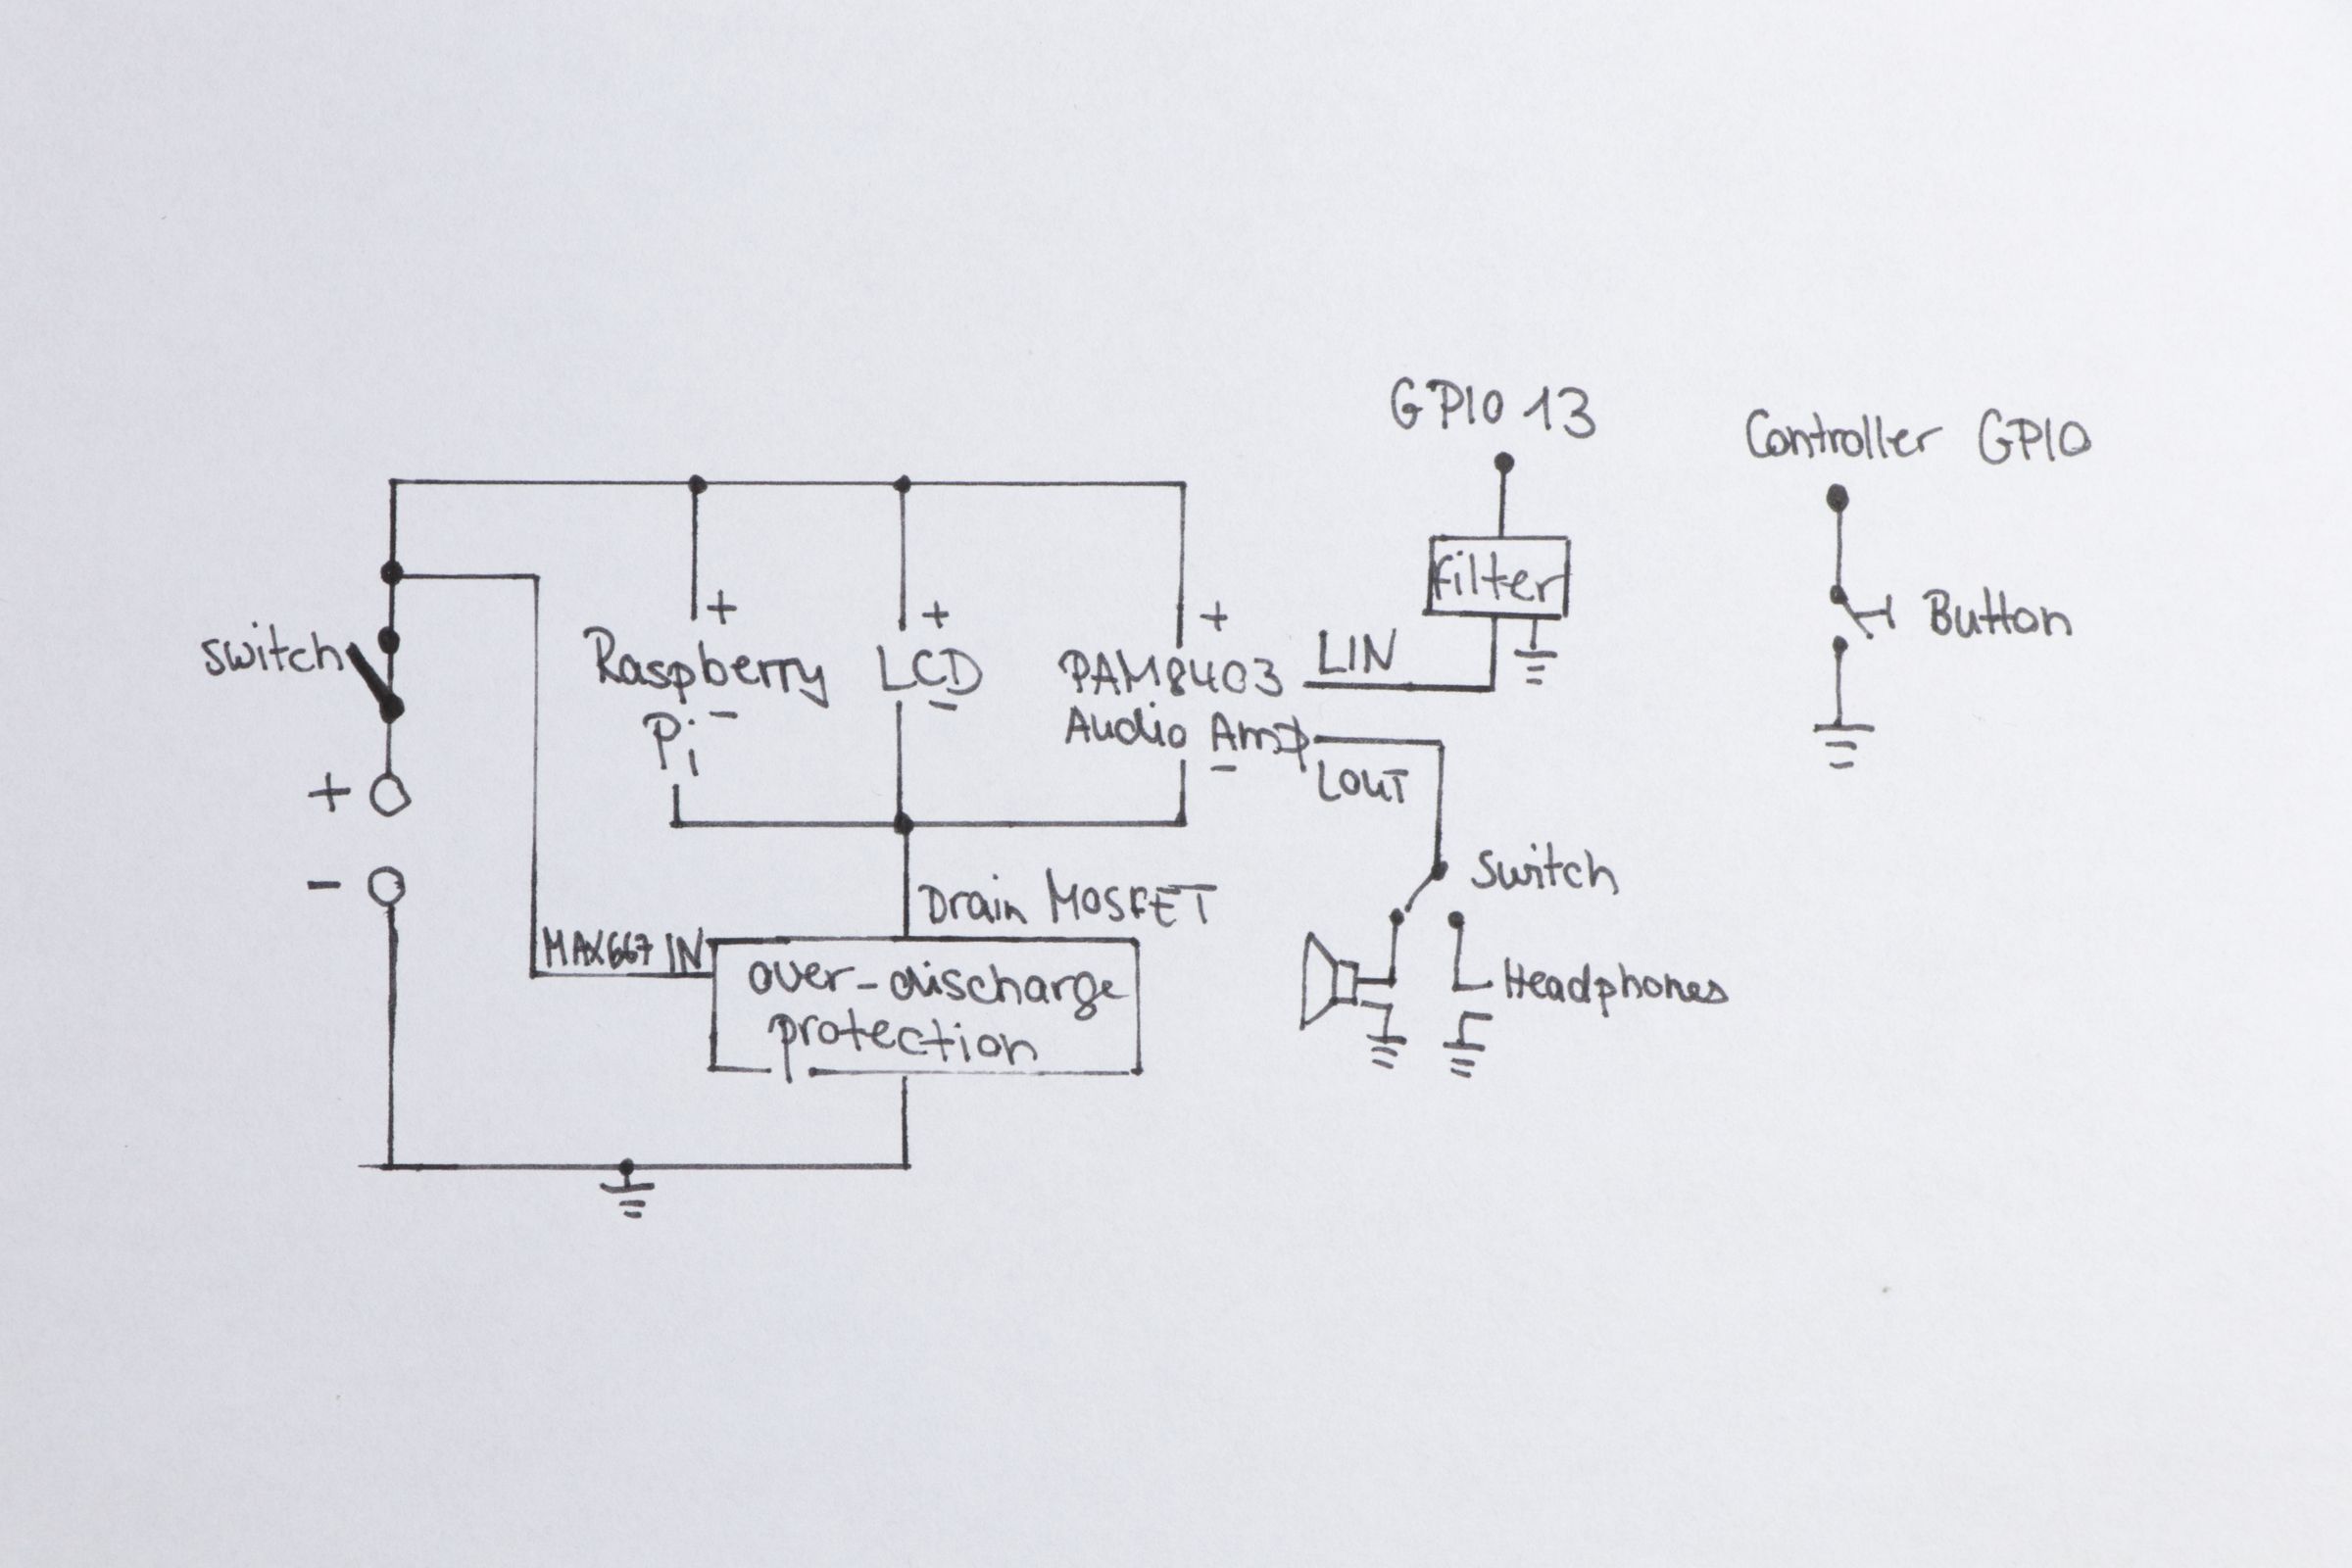 GPIO 13
Controller GPIO
filter
Button
switch
+
-
+
Raspberry
Pi -
+
LCD
-
+
PAM8403
Audio Amp
-
LIN
LOUT
Switch
Headphones
Drain MOSFET
MAX667 IN
over-discharge
protection